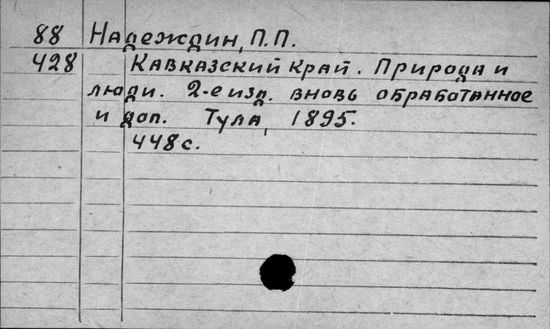 88 Надеждин, П.П.
428 Кавказский край. Природа и
люди. 2-е изд. вновь обработанное
и доп. Тула, 1895.
448 с.